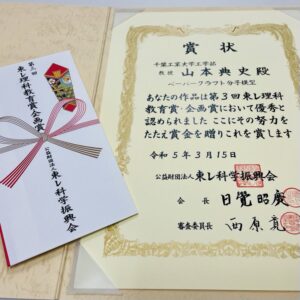 第三回
東レ理科教育賞・企画賞
公益財団法人 東レ科学振興会
賞状
千葉工業大学工学部
教授 山本典史殿
ペーパークラフト分子模型
あなたの作品は第3回東レ理科
教育賞・企画賞において優秀と
認められました ここにその努力を
たたえ賞金を贈りこれを賞します
令和5年3月15日
公益財団法人 東レ科学振興会
会長 日覺昭廣
審査委員長 西原寛